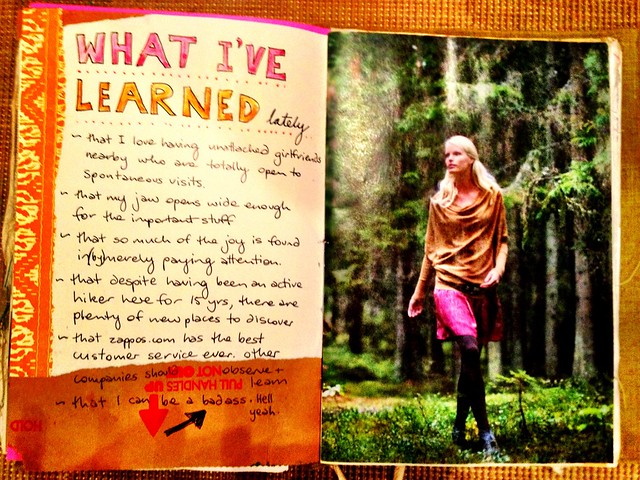 WHAT I'VE
LEARNED lately
~ that I love having unattached girlfriends
nearby who are totally open to
spontaneous visits.
~ that my jaw opens wide enough
for the important stuff
~ that so much of the joy is found
in/by merely paying attention.
~ that despite having been an active
hiker here for 15 yrs, there are
plenty of new places to discover
~ that zappos.com has the best
customer service ever. other
companies should observe +
learn
~ that I can be a badass. Hell
yeah.
DO NOT
PULL HANDLES UP
HOLD